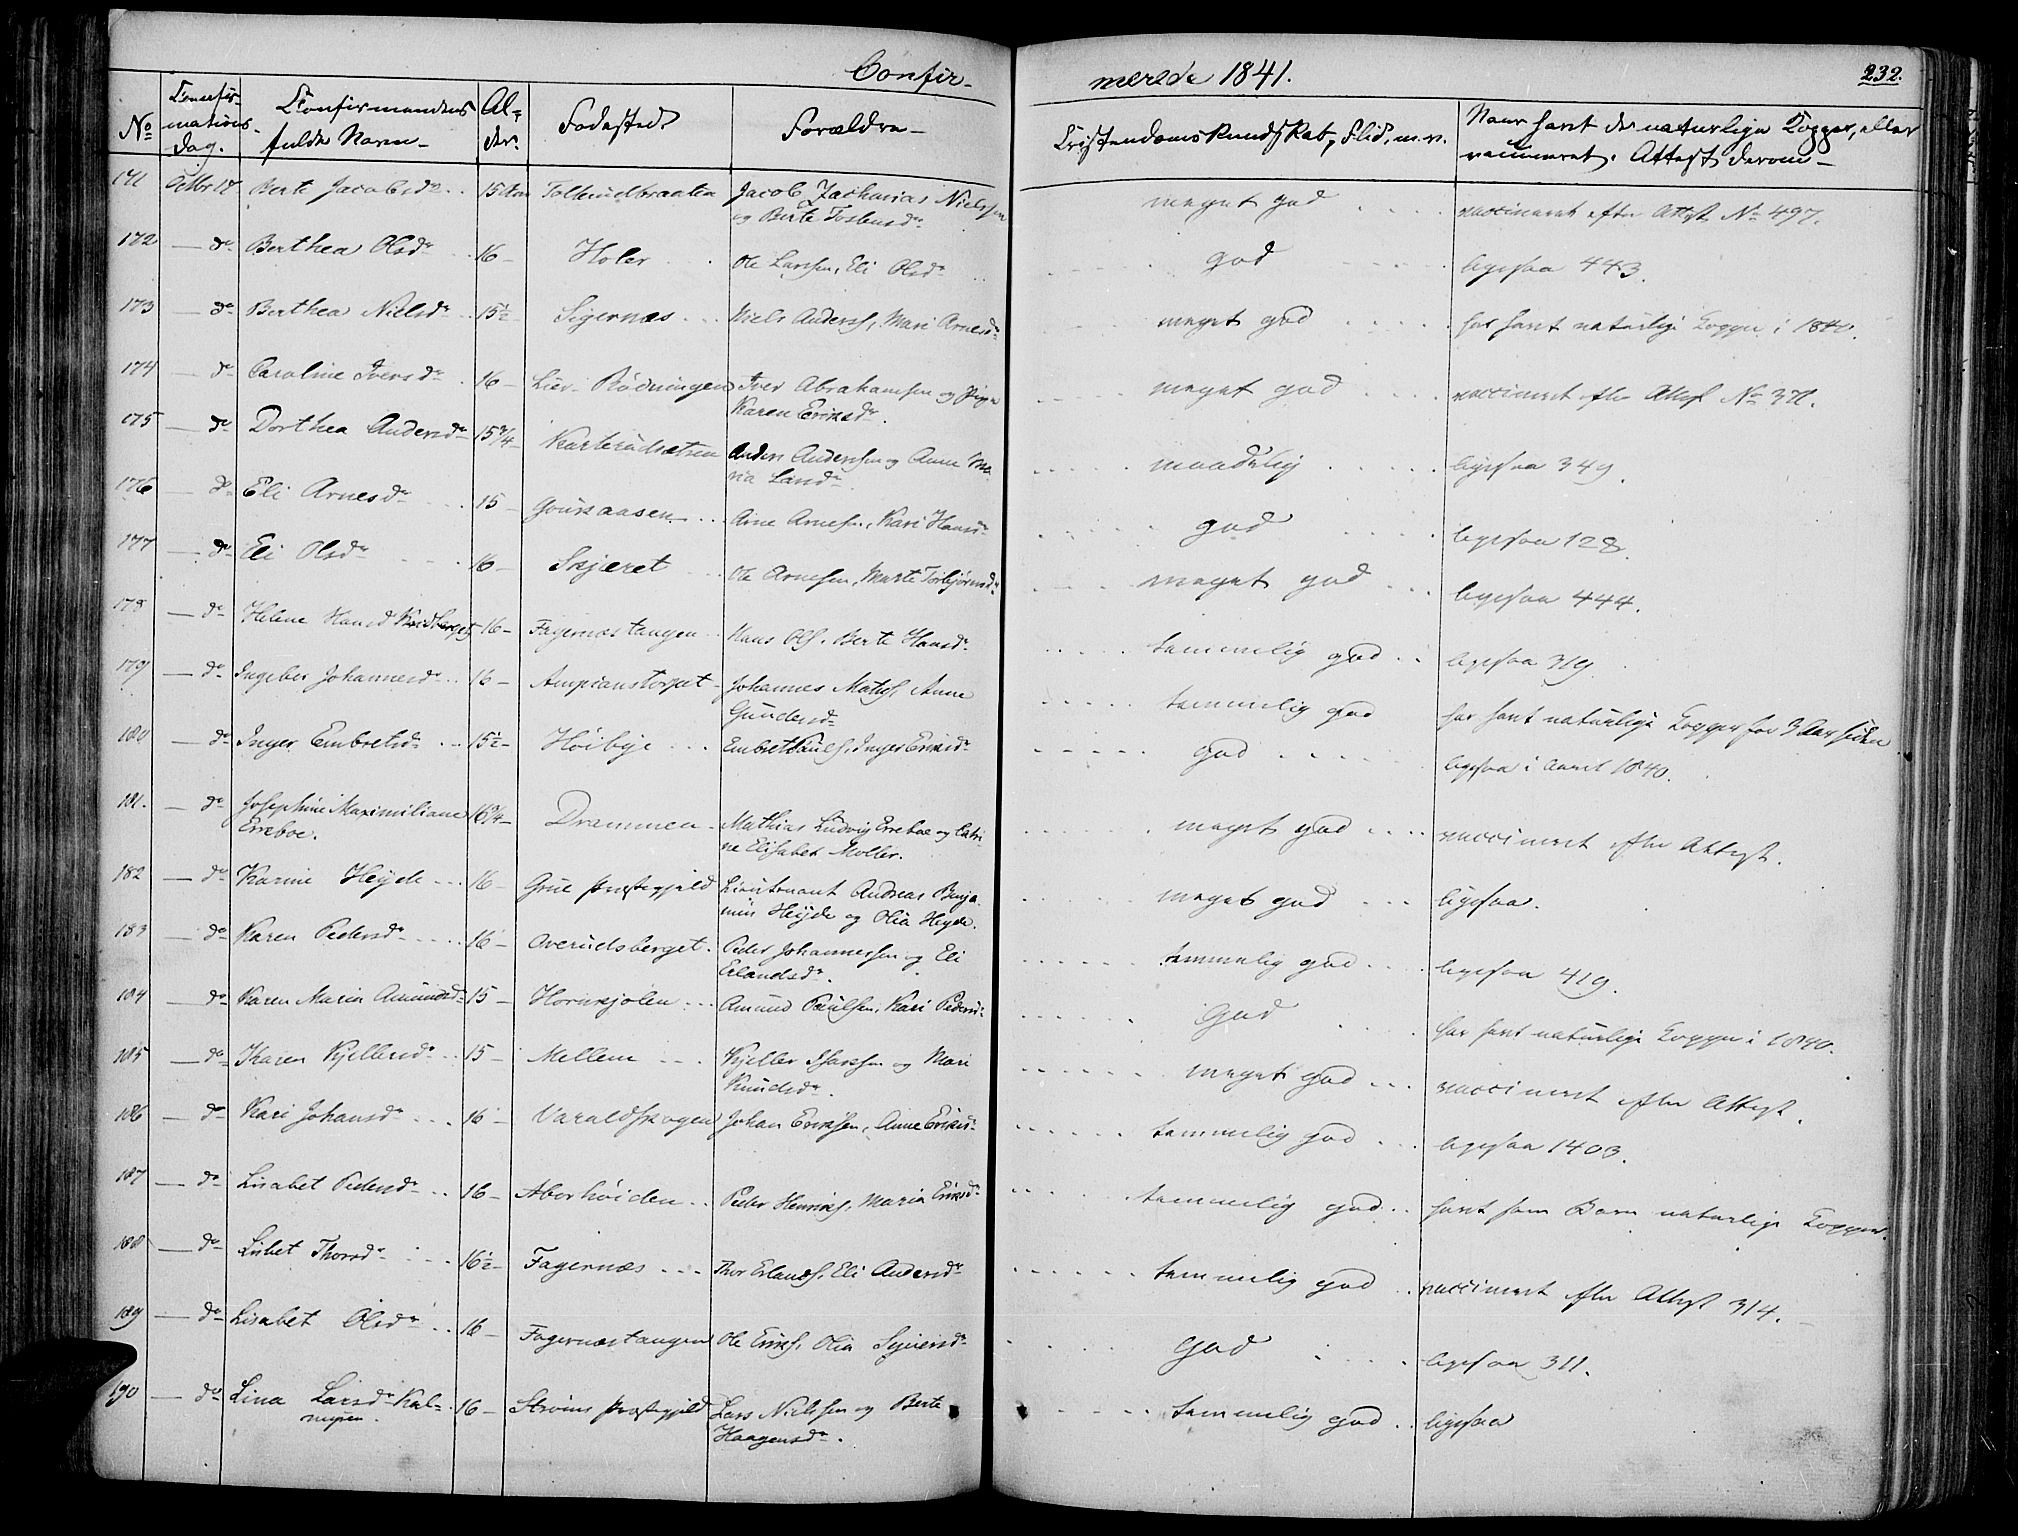 Confir-
merede 1841.
232.
No
Confir-
mations-
dag.
Confirmandens
fulde Navn
Al-
der.
Fødested
Forældre
Cristendomskundskab, Flid, m.v.
Naar havt de naturlige Kopper, eller
vaccineret. Attest derom
171 Octbr 17 Berte Jacobsdr 15 Aar Tollerudbraaten Jacob Zacharias Nielssen
og Berte Torbensdr meget god vaccineret efter Attest No 497.
172 — do Berthea Olsdr 16 — Holer Ole Larssen, Eli Olsdr god ligesaa 443.
173 — do Berthea Nielsdr 15½ Sigernæs Niels Anderss, Mari Arnesdr meget god har havt naturlige Kopper i 1840.
174 — do Caroline Iversdr 16 — Lier-Rödningen Iver Abrahamsen og Pige
Karen Eriksdr. meget god vaccineret efter Attest No 371.
175 — do Dorthea Andersdr 15¾ — Karterudsætren Anders Anderssen og Anne Ma-
ria Landr maadelig ligesaa 349.
176 — do Eli Arnesdr 15 Gouksaasen Arne Arnesen, Kari Hansdr god ligesaa 128.
177 — do Eli Olsdr 16 — Skjæret Ole Arnesen, Marte Torbjørnsdr meget god ligesaa 444.
178 — do Helene Hansd 16 — Fagernæstangen Hans Ols. Berte Hansdr temmelig god ligesaa 319.
179 — do Ingebor Johannesdr 16 — Ampianstorpet Johannes Maths, Anne
Gundersdr temmelig god har havt naturlige Kopper for 3 Aar siden
180 — do Inger Embretsdr 15½ — Höibye Embret Pauls, Inger Eriksdr god ligesaa i Aaret 1840.
181. — do Josephine Maximiliane 16¾ — Drammen Mathias Ludvig Erreboe og Catri-
Erreboe. ne Elisabet Moller. meget god vaccineret efter Attest.
182 — do Karine Heyde 16 — Grue Præstegjeld Lieutenant Andreas Benja-
min Heyde og Olia Heyde. meget god ligesaa.
183 — do Karen Pedersdr 16 — Overudsberget. Peder Johannessen og Eli
Erlandsdr. temmelig god ligesaa 419.
184 — do Karen Maria Amundsdr 15 — Hornkjølen Amund Paulsen, Kari Pedersdr God har havt naturlige Kopper i 1840.
185 — do Karen Kjellersdr 15 — Mellem Kjeller Isakssen og Mari
Knudsdr. meget god vaccineret efter Attest.
186 — do Kari Johansdr 16 — Varaldskogen Johan Erikssen, Anne Eriksdr temmelig god ligesaa 1403.
187 — do Lisabet Pedersdr 16 — Aborhöiden Peder Henriks, Maria Eriksdr temmelig god havt som Barn naturlige Kopper.
188 — do Lisbet Thorsdr 16½ — Fagernæs Thor Erlands, Eli Andersdr temmelig god vaccineret efter Attest 314.
189 — do Lisabet Olsdr 16 — Fagernæstangen Ole Eriks, Olia Syversdr God ligesaa 311.
190 — do Lina Larsdr Kal- 16 — Ströms Præstegjeld Lars Nielssen og Berte
Haagensdr. temmelig god ligesaa